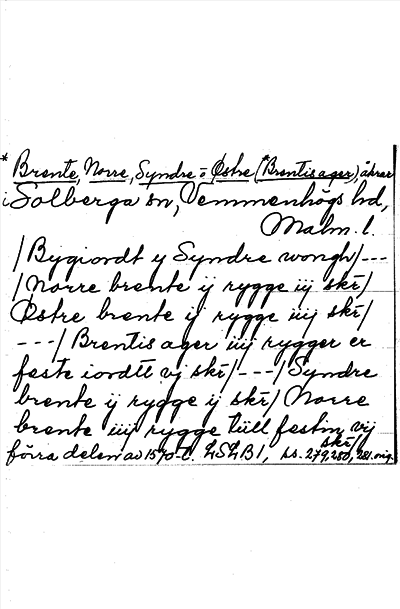 * Brente, Norre, Syndre o Østre (*Brentisager), åkrar
i Solberga sn, Vemmenhögs hd,
Malm. l.
/Bygiordt y Syndre wongh/---
/Norre brente ij rygge iij skr/
Østre brente ij rygge iiij skr/
---/Brentis ager iiij rygger er
feste iordtt vj skr/---/Syndre
brente ij rygge ij skr/Norre
brente iiij rygge till festm vij
skr/
förra delen av 1570-t. LSLB 1, ss. 279, 280, 281. orig.